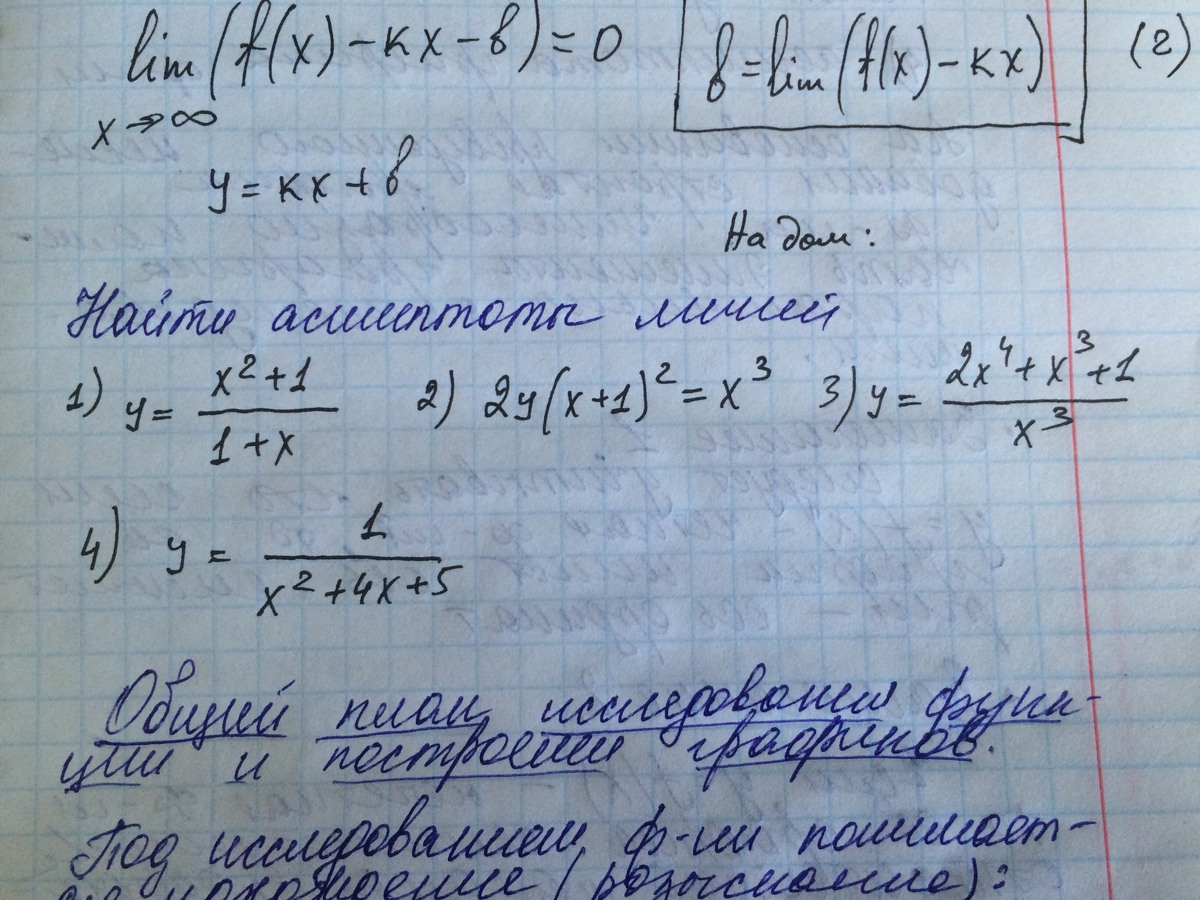 lim (f(x) − кх − в) = 0   в = lim (f(x) − кх)   (2)
x → ∞
y = кх + в
На дом:
Найти асимптоты линий
1) y = (x² + 1) / (1 + x)   2) 2y(x+1)² = x³   3) y = (2x⁴ + x³ + 1) / x³
4) y = 1 / (x² + 4x + 5)
Общий план исследования функ-
ции и построения графиков.
Под исследованием ф-ии понимает-
ся нахождение (разыскание):